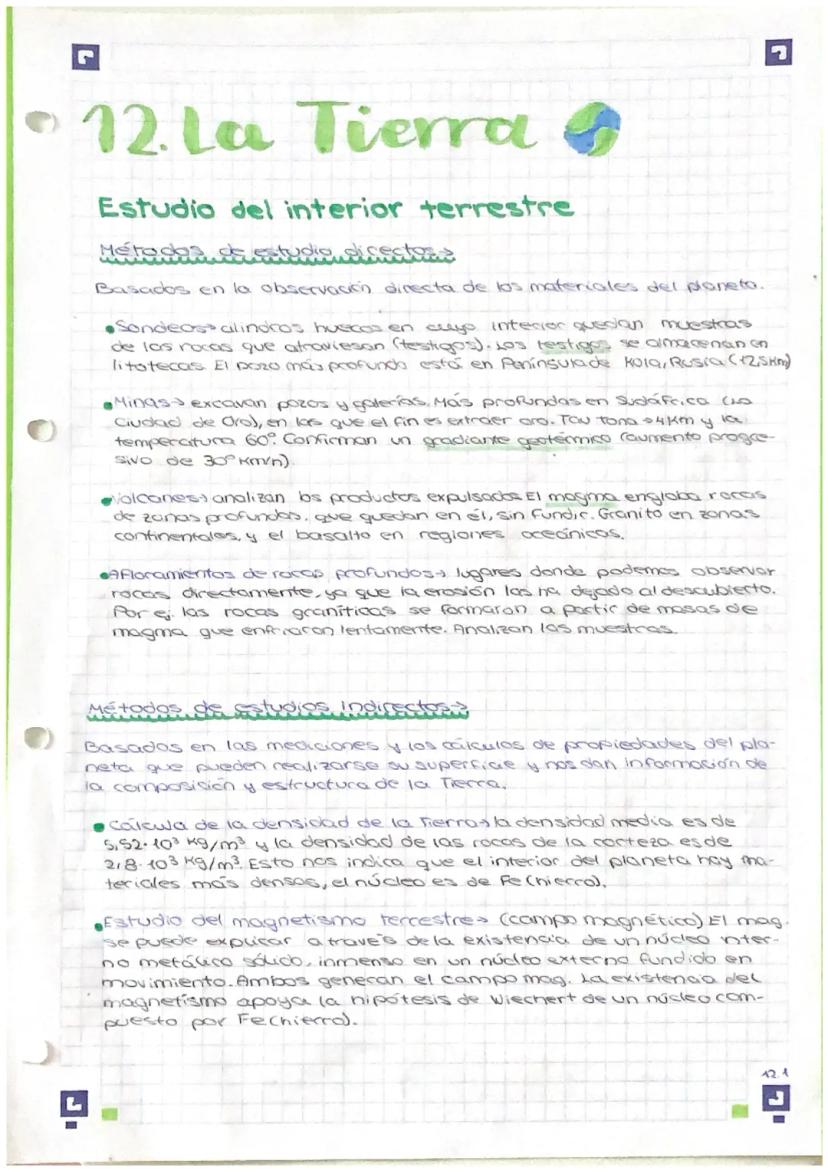 12. La Tierra
Estudio del interior terrestre
Métodos de estudio directos→
Basados en la observación directa de los materiales del planeta.
•Sondeos→ cilindros huecos en cuyo interior quedan muestras
de las rocas que atraviesan (testigos). Los testigos se almacenan en
litotecas. El pozo más profundo está en Península de Kola, Rusia (12,5Km)
•Minas→ excavan pozos y galerías. Más profundas en Sudáfrica (La
Ciudad de Oro), en las que el fin es extraer oro. Tau tona →4Km y la
temperatura 60º. Confirman un gradiante geotérmico (aumento progre-
sivo de 30º Km/h)
•Volcanes→ analizan los productos expulsados. El magma engloba rocas
de zonas profundas, que quedan en él, sin fundir. Granito en zonas
continentales, y el basalto en regiones oceánicos.
•Afloramientos de rocas profundos→ lugares donde podemos observar
rocas directamente, ya que la erosión las ha dejado al descubierto.
Por ej. las rocas graníticas se formaron a partir de masas de
magma que enfriaron lentamente. Analizan las muestras.
Métodos de estudios indirectos→
Basados en las mediciones y los cálculos de propiedades del pla-
neta que pueden realizarse su superficie y nos dan información de
la composición y estructura de la Tierra.
•Cálcula de la densidad de la Tierra→ la densidad media es de
5,52·10³ Kg/m³ y la densidad de las rocas de la corteza es de
2,8·10³ Kg/m³. Esto nos indica que el interior del planeta hay ma-
teriales más densos, el núcleo es de Fe (hierro).
•Estudio del magnetismo terrestre→ (campo magnético) El mag.
se puede explicar a través de la existencia de un núcleo inter-
no metálico sólido, inmenso en un núcleo externo fundido en
movimiento. Ambos generan el campo mag. La existencia del
magnetismo apoya la hipótesis de Wiechert de un núcleo com-
puesto por Fe (hierro).
12.1